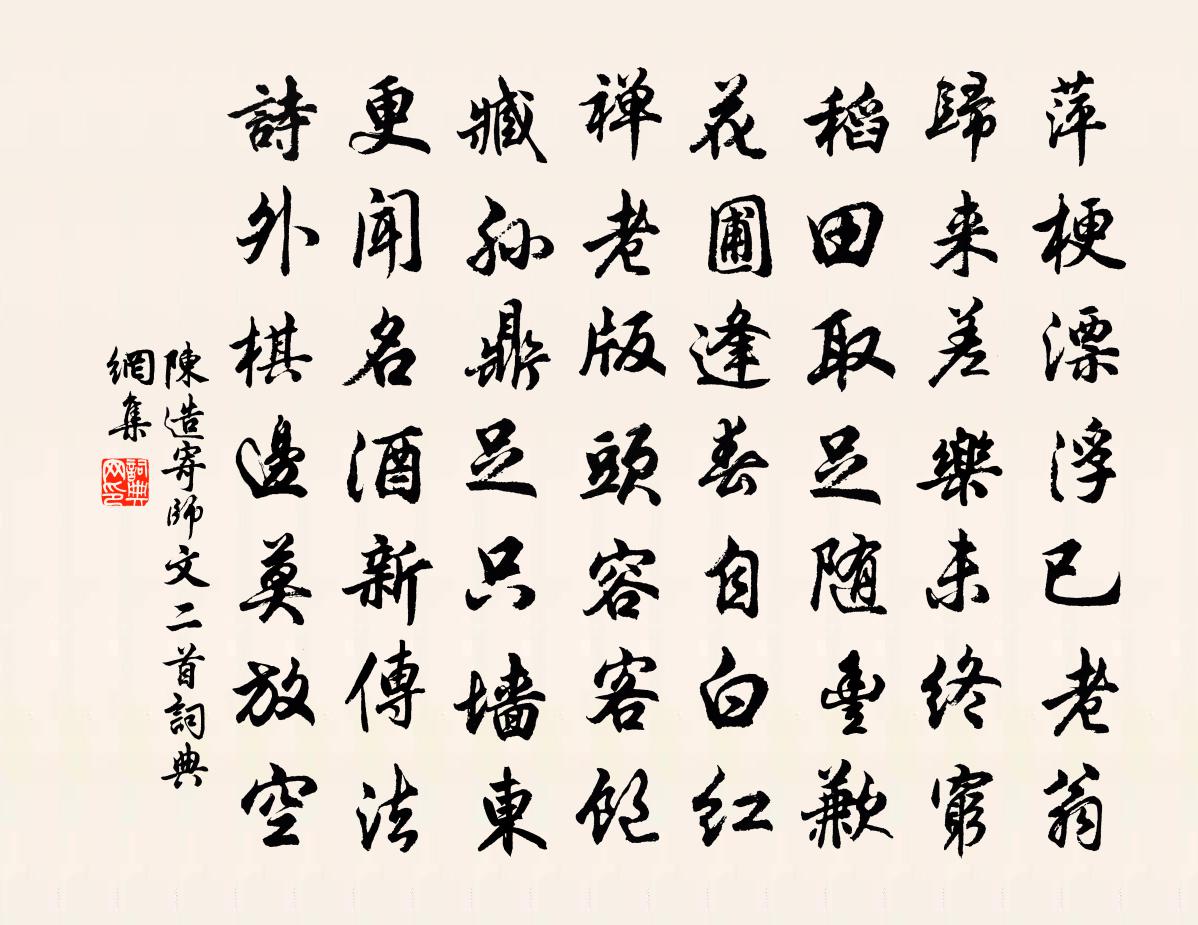 萍梗漂浮已老翁
歸来差樂未終窮
稻田取足随豊歉
花圃逢春自白紅
禅老版頭容客飽
臧孙鼎足只墙東
更闻名酒新傳法
詩外棋邊莫放空
陳造寄師文二首詞典
網集
詞典
网印